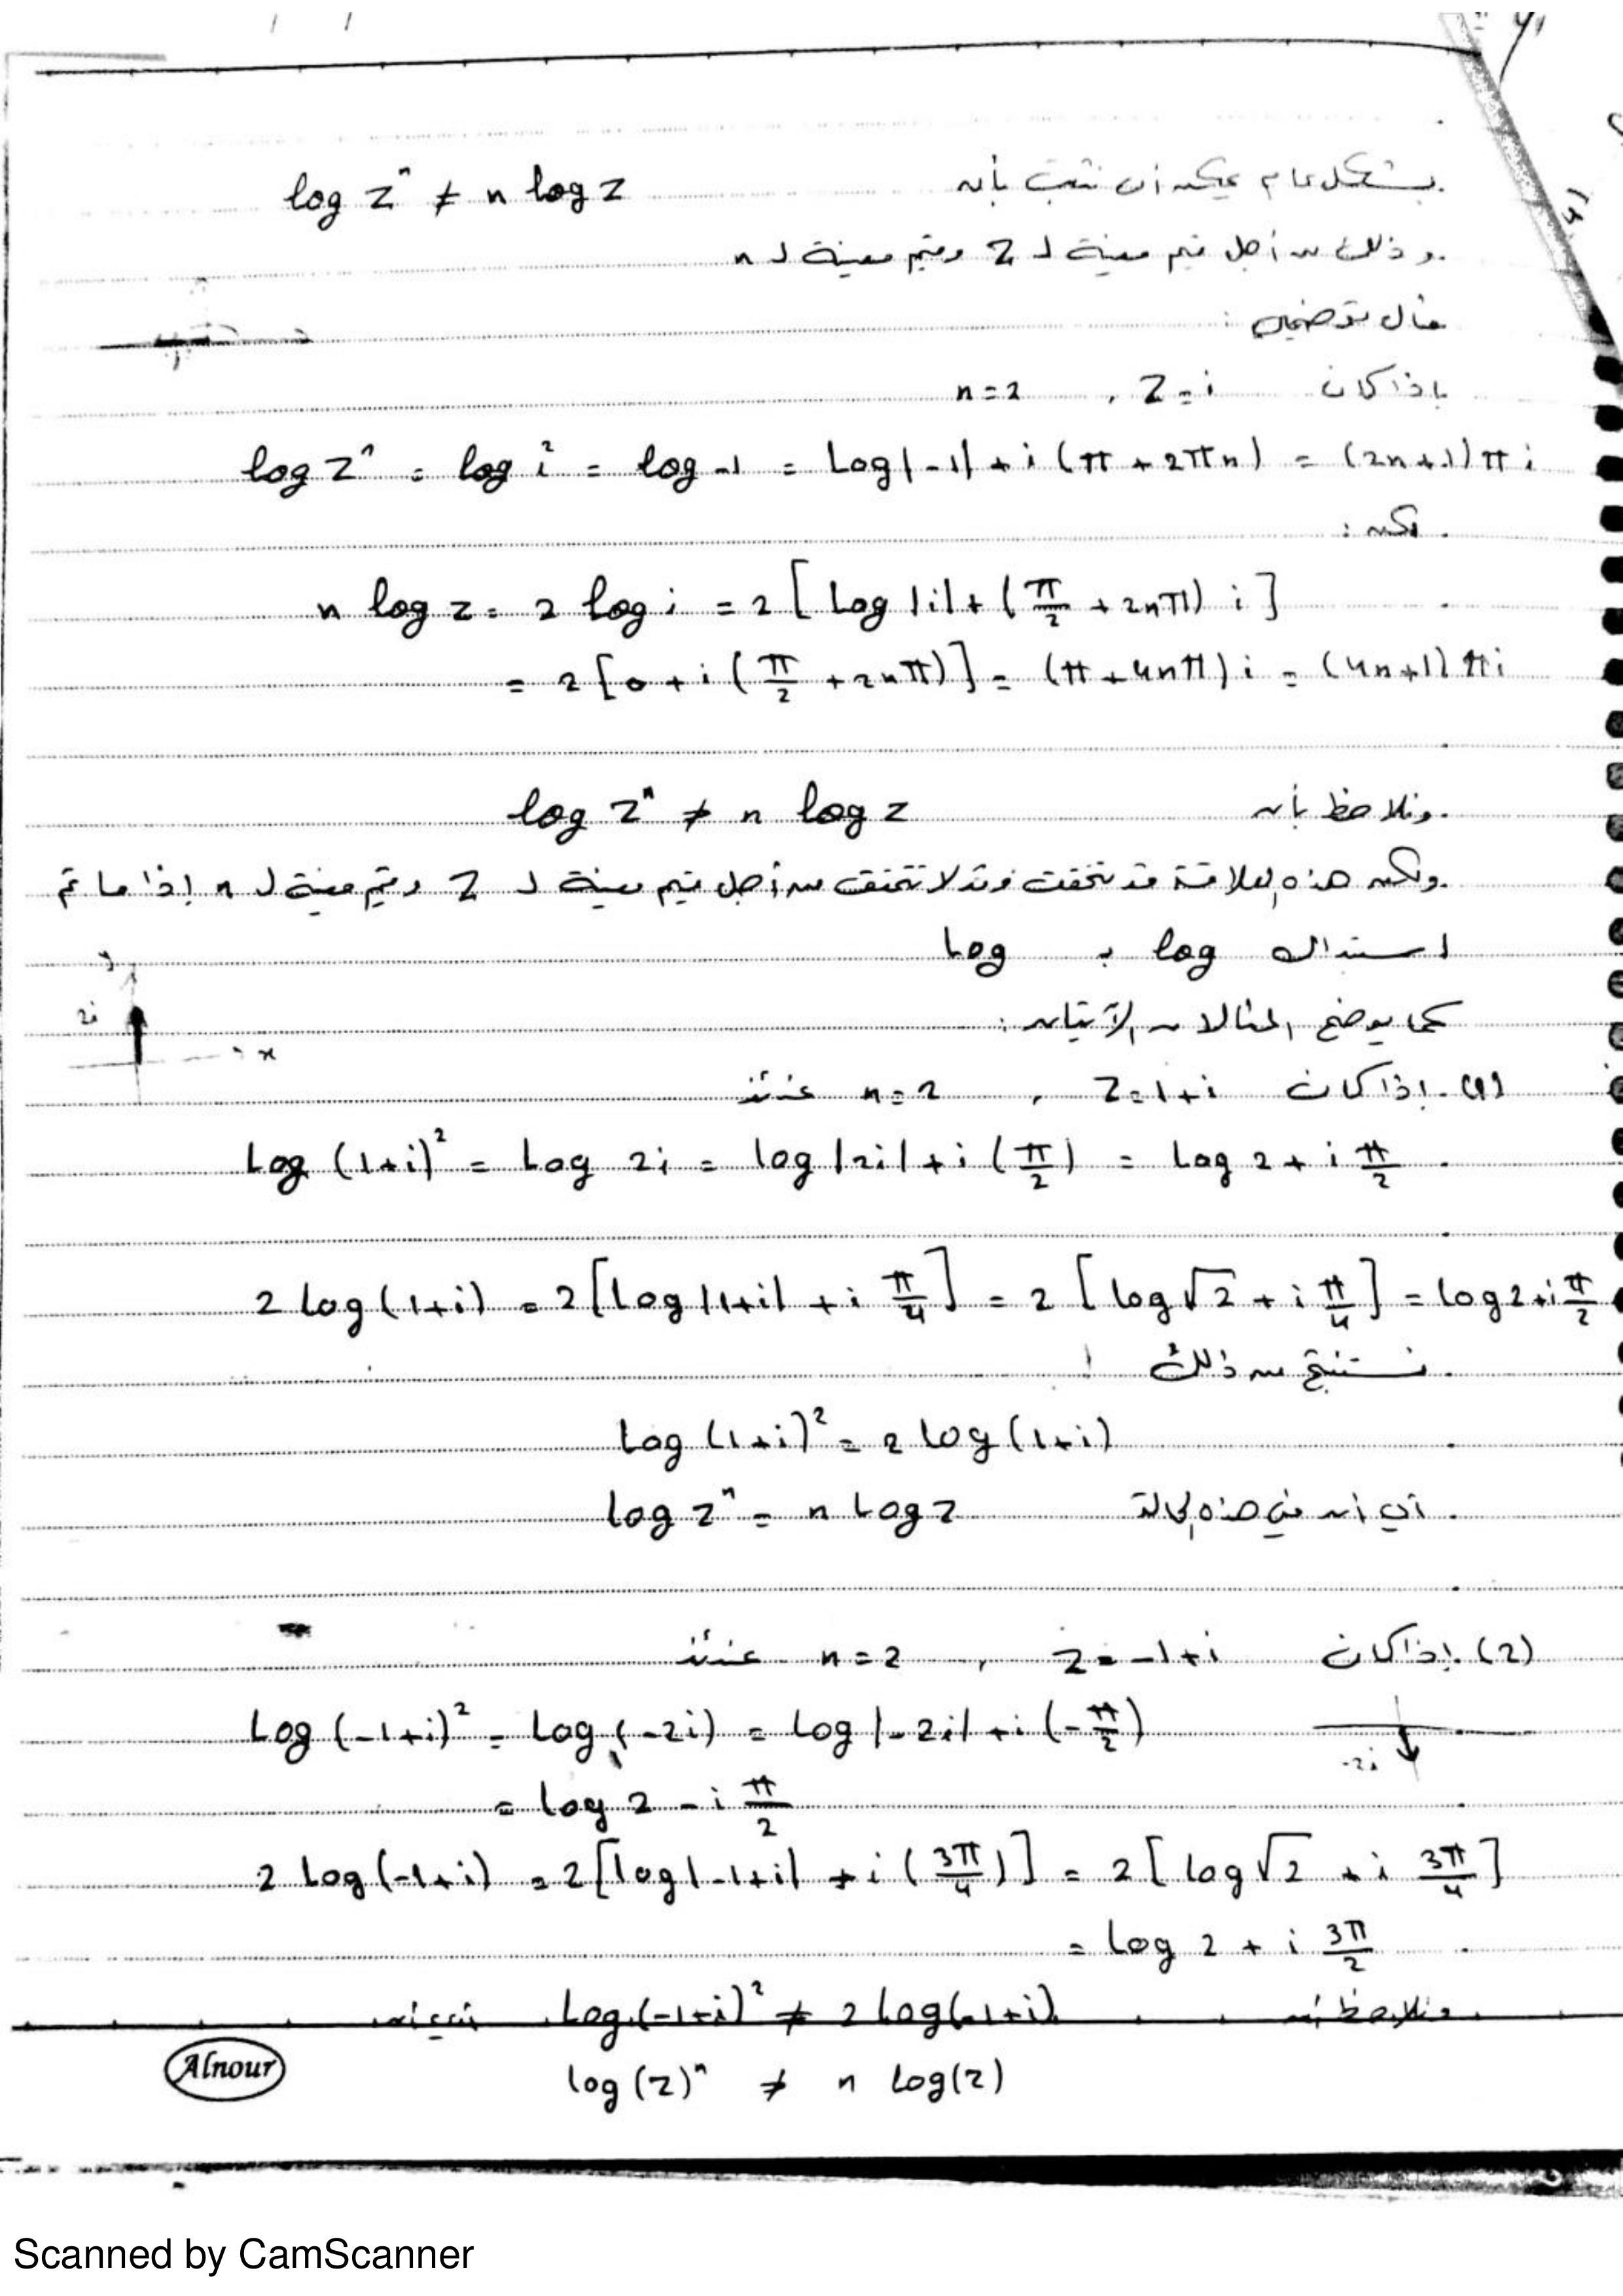 بشكل عام يمكن أن نثبت بأنه log zⁿ ≠ n log z
وذلك من أجل قيم معينة لـ z وقيم معينة لـ n
مثال توضيحي :
إذا كان z = i , n = 2
log zⁿ = log i² = log -1 = Log |-1| + i (π + 2πn) = (2n+1) π i
لكن :
n log z = 2 log i = 2 [ Log |i| + (π/2 + 2nπ) i ]
= 2 [ 0 + i (π/2 + 2nπ) ] = (π + 4nπ) i = (4n+1) π i
ونلاحظ بأن log zⁿ ≠ n log z
ولكن هذه العلاقة قد تتحقق وقد لا تتحقق من أجل قيم معينة لـ z وقيم معينة لـ n إذا ما تم
استبدال log بـ Log
y
2i
x
كما يوضح المثالان الآتيان :
(1) إذا كان z = 1+i , n = 2 عندئذ
Log (1+i)² = Log 2i = log |2i| + i (π/2) = Log 2 + i π/2
2 Log (1+i) = 2 [Log |1+i| + i π/4] = 2 [ Log √2 + i π/4 ] = Log 2 + i π/2
نستنتج من ذلك
Log (1+i)² = 2 Log (1+i)
أي أنه في هذه الحالة Log zⁿ = n Log z
(2) إذا كان z = -1+i , n = 2 عندئذ
Log (-1+i)² = Log (-2i) = Log |-2i| + i (-π/2)
-2i
= Log 2 - i π/2
2 Log (-1+i) = 2 [Log |-1+i| + i (3π/4)] = 2 [ Log √2 + i 3π/4 ]
= Log 2 + i 3π/2
ونلاحظ أنه Log (-1+i)² ≠ 2 Log (-1+i)
Log (z)ⁿ ≠ n Log (z)
Alnour
Scanned by CamScanner